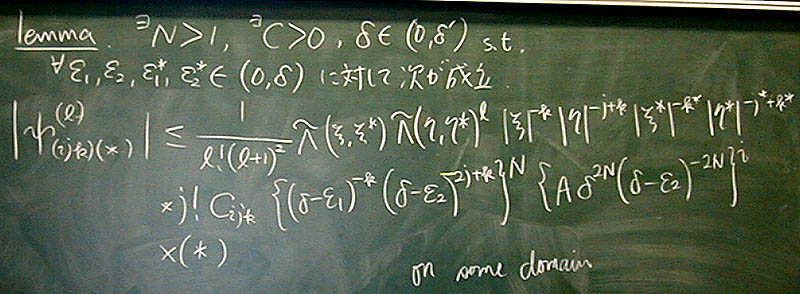 lemma. ∃N>1, ∃C>0, δ∈(0,δ') s.t.
∀ε₁,ε₂,ε₁*,ε₂*∈(0,δ) に対して次が成立
|ψ^{(l)}_{(ijk)(*)}| ≤ 1/(l!(l+1)²) λ̃(ξ,ξ*) λ̃(η,η*)^l |ξ|^{-k} |η|^{-j+k} |ξ*|^{-k*} |η*|^{-j*+k*}
×j! C_{ijk} {(δ-ε₁)^{-k} (δ-ε₂)^{-2j+k}}^N {Aδ^{2N}(δ-ε₂)^{-2N}}^i
×(*)
on some domain